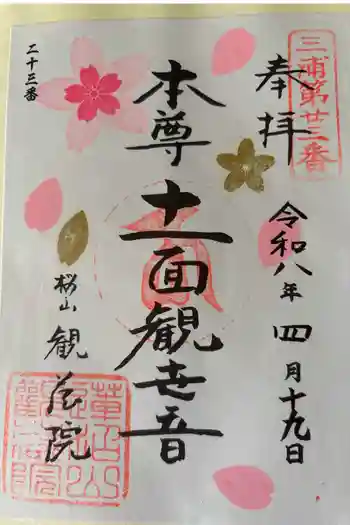 三浦第廿三番
奉拝
令和八年四月十九日
本尊
十一面観世音
二十三番
桜山 観蔵院